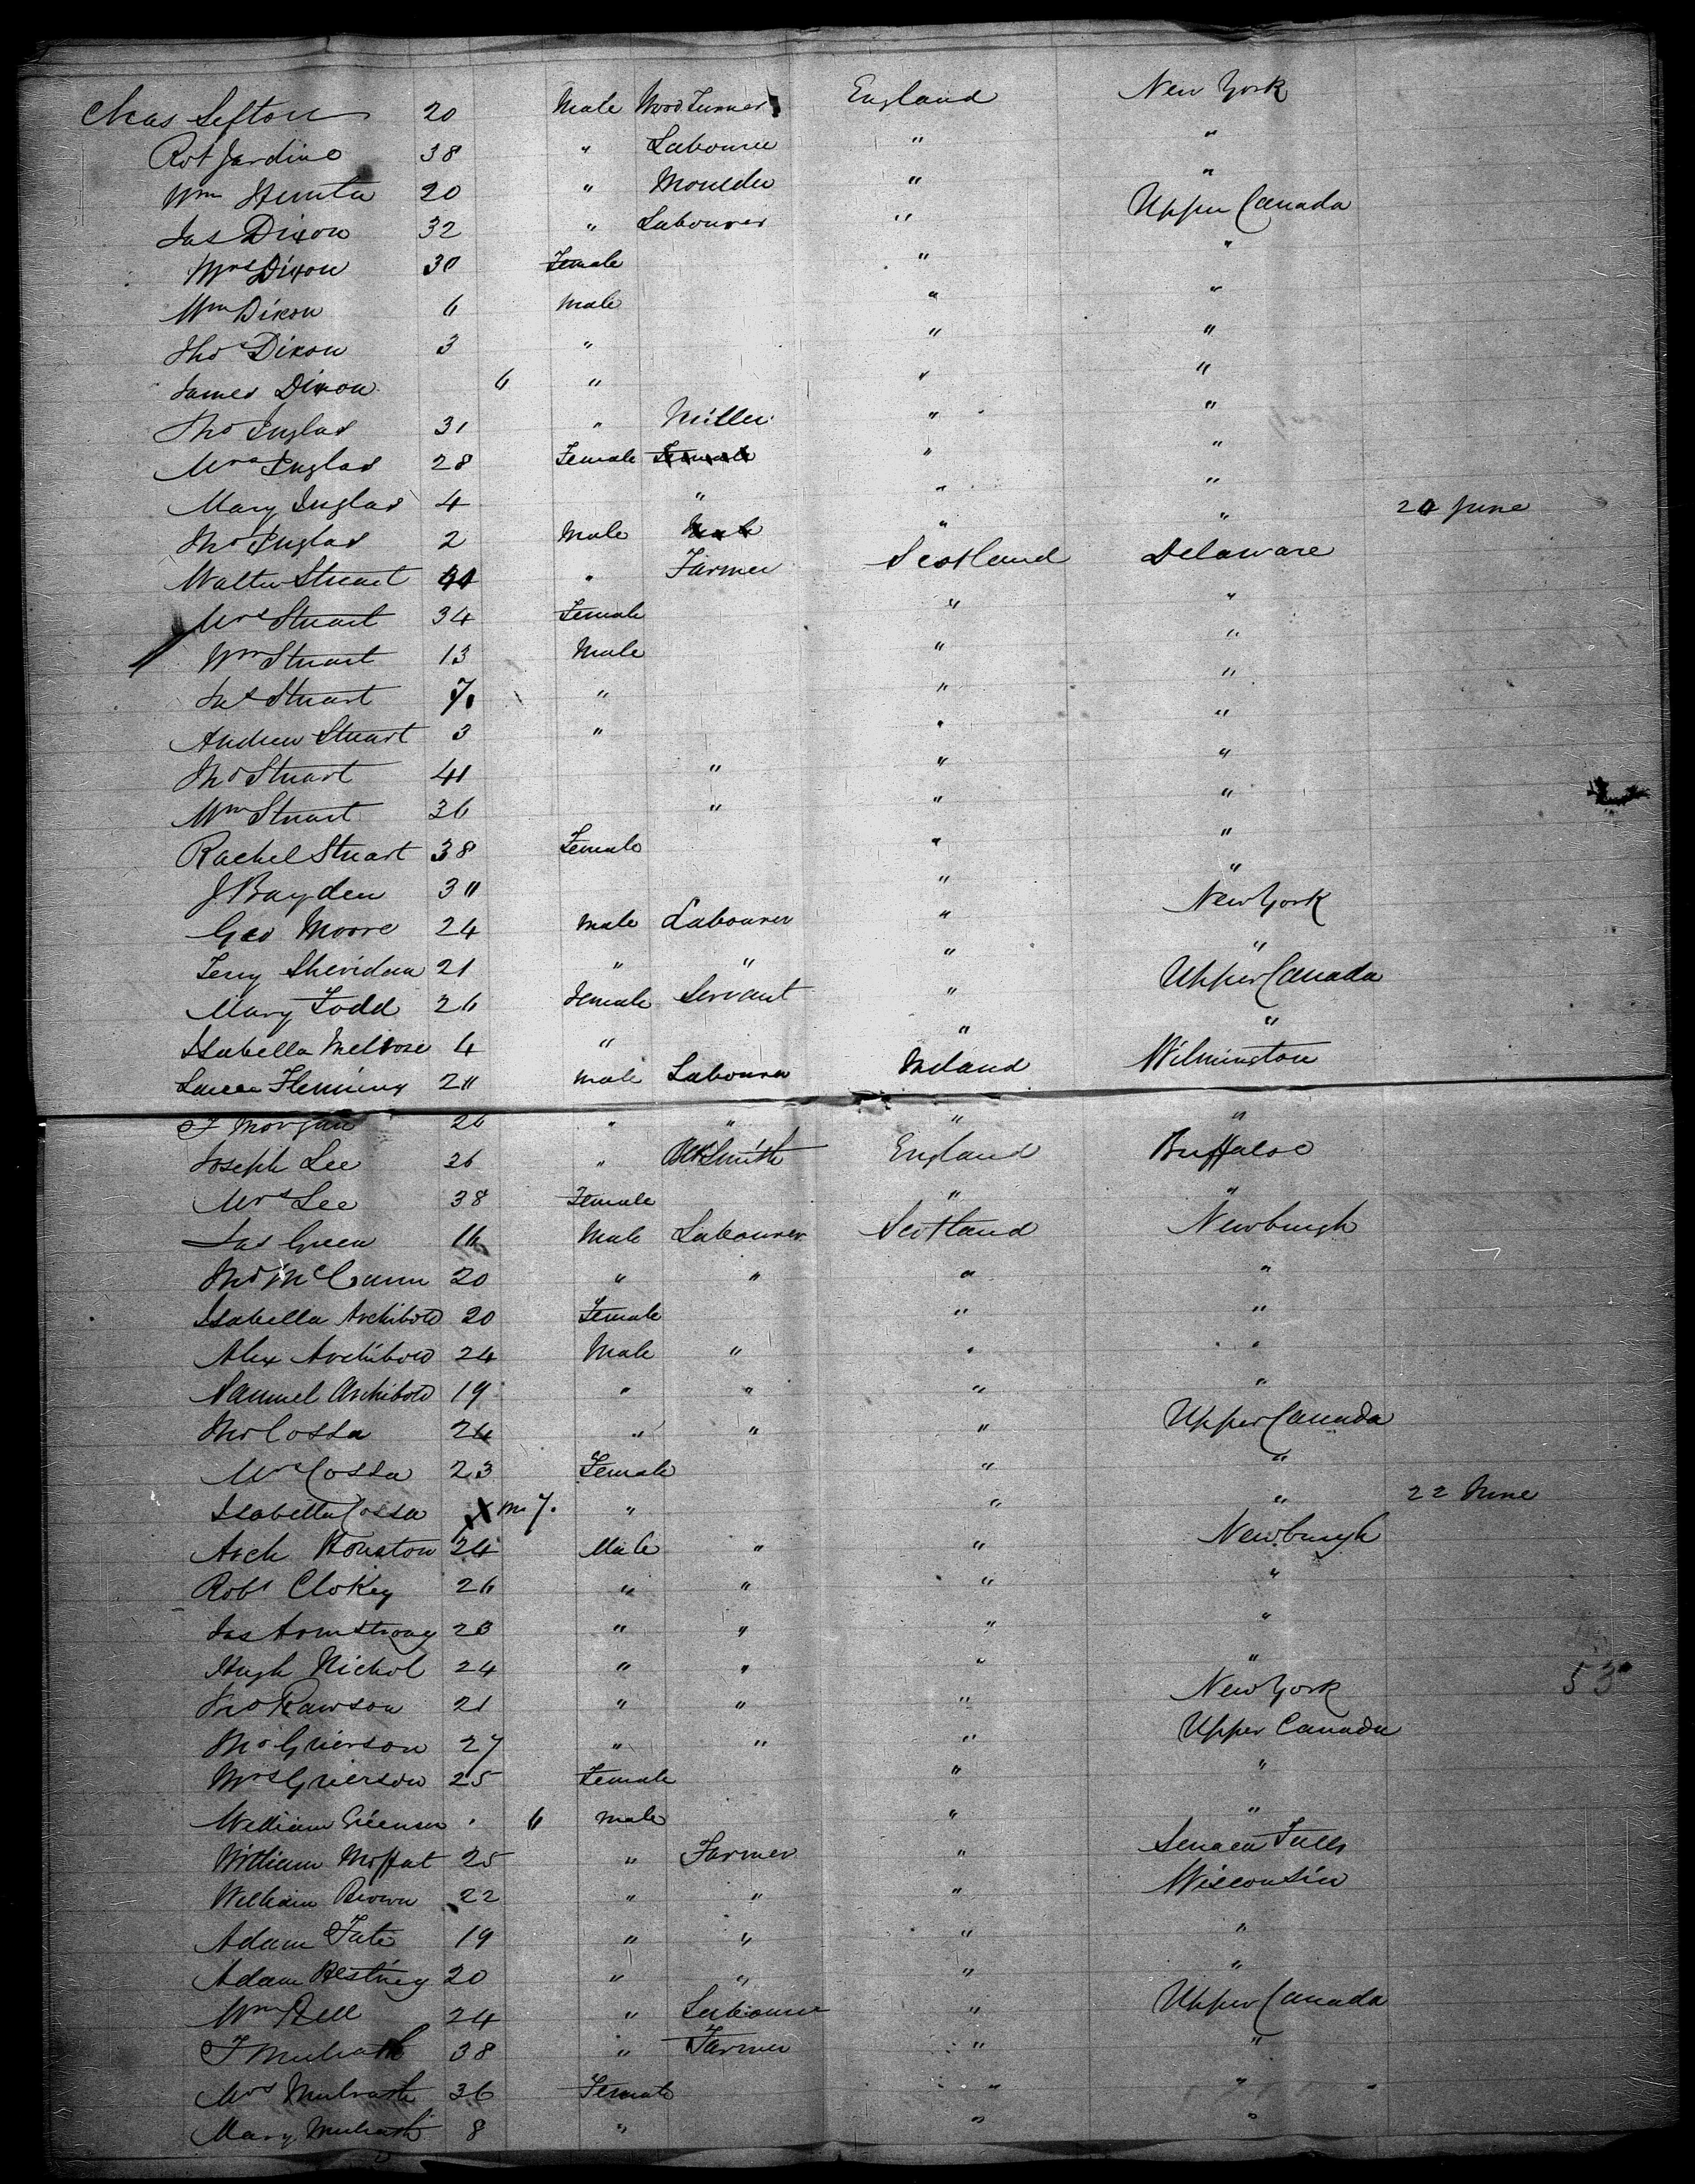 Chas Sefton 20 Male Wood Turner England New York
Rot Jardine 38 " Labourer " "
Wm Hunter 20 " Moulder " "
Jas Dixon 32 " Labourer " Upper Canada
Mrs Dixon 30 Female " "
Wm Dixon 6 Male " "
Thos Dixon 3 " " "
James Dixon 6 " " "
Tho Inglas 31 " Miller " "
Mrs Inglas 28 Female Female " "
Mary Inglas 4 " " "
Tho Inglas 2 Male Male " " 20 June
Walter Stuart 41 " Farmer Scotland Delaware
Mrs Stuart 34 Female " "
Wm Stuart 13 Male " "
Jas Stuart 7 " " "
Andrew Stuart 3 " " "
Tho Stuart 41 " " "
Wm Stuart 36 " " "
Rachel Stuart 38 Female " "
J Bayden 30 " "
Geo Moore 24 Male Labourer " New York
Terry Sheridan 21 " " " "
Mary Todd 26 Female Servant " Upper Canada
Isabella Melrose 4 " " "
Fleming 20 Male Labourer Ireland Wilmington
T Morgan 26 " " " "
Joseph Lee 36 " Smith England Buffaloe
Mrs Lee 38 Female " "
Jas Green 16 Male Labourer Scotland Newburgh
Tho McCunn 20 " " " "
Isabella Archibold 20 Female " "
Alex Archibold 24 Male " " "
Samuel Archibold 19 " " " "
Tho Cossa 24 " " " Upper Canada
Mrs Cossa 23 Female " "
Isabella Cossa m 7. " " " 22 June
Arch Houston 24 Male " " Newburgh
Robt Clokey 26 " " " "
Jas Armstrong 23 " " " "
Hugh Nichol 24 " " " "
Jno Rawson 21 " " " New York 53
Tho Grierson 27 " " " Upper Canada
Mrs Grierson 25 Female " "
William Grierson 6 Male " "
William Moffat 25 " Farmer " Senaca Falls
William Brown 22 " " " Wisconsin
Adam Tate 19 " " " "
Adam 20 " " " "
Wm Bell 24 " Labourer " Upper Canada
T 38 " Farmer " "
Mrs 36 Female " "
Mary 8 " " "